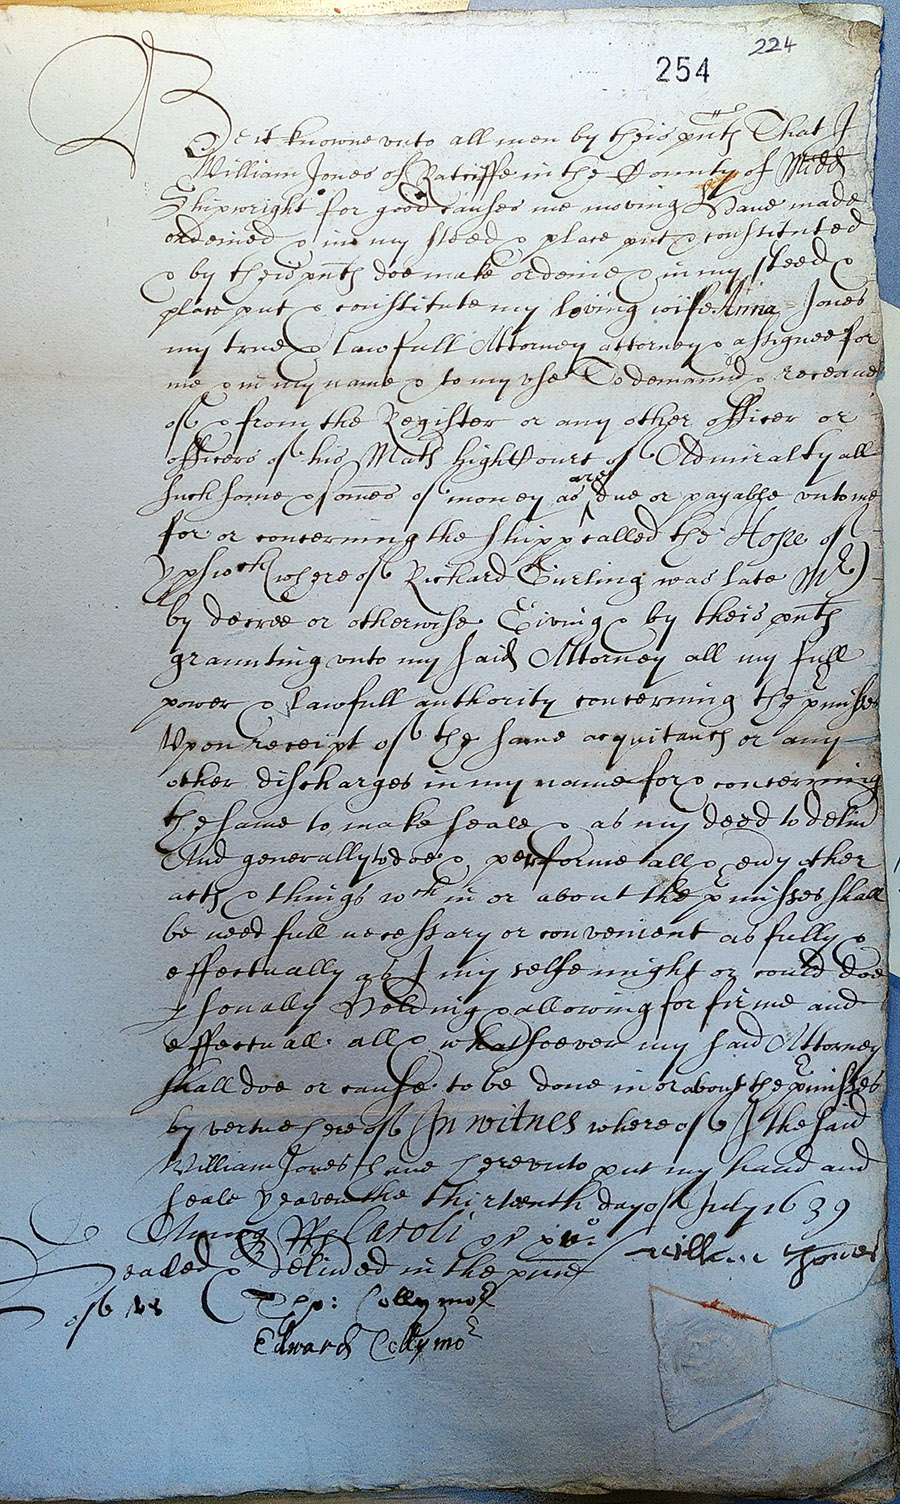 224
254
Be it knowne vnto all men by theis pñts That I
William Jones of Ratcliffe in the County of Midd
Shipwright for good causes me moving Haue made
ordeined & in my steed & place put & constituted
& by theis pñts doe make ordeine & in my steed &
place put & constitute my loving wife Anna Jones
my true & lawfull Attorney attorney & assignee for
me & in my name & to my vse To demannd & receaue
of & from the Register or any other officer or
officers of his Mats high Court of Admiralty all
such some & somes of money as are due or payable vnto me
for or concerning the shipp called the Hope of
Ypswch (whereof Richard Gurling was late Mr)
by decree or otherwise Giving & by theis pñts
graunting vnto my said Attorney all my full
power & lawfull authority concerning the pmisses
Vpon receipt of the same acquitancs or any
other discharges in my name for & concerning
the same to make seale & as my deed to deliu
And generally to doe & performe all & euy other
acts & things wch in or about the pmisses shall
be needfull necessary or convenient as fully &
effectually as I my selfe might or could doe
psonally Holding & allowing for firme and
effectuall all & whatsoever my said Attorney
shall doe or cause to be done in or about the pmisses
by vertue hereof In witnes whereof I the said
William Jones haue herevnto put my hand and
seale yeaven the thirteenth day of July 1639
Annoq RRs Caroli &c xvo.
William Jones
Sealed & deliued in the pnce
of vs
Tho: Collymor
Edward Collymor